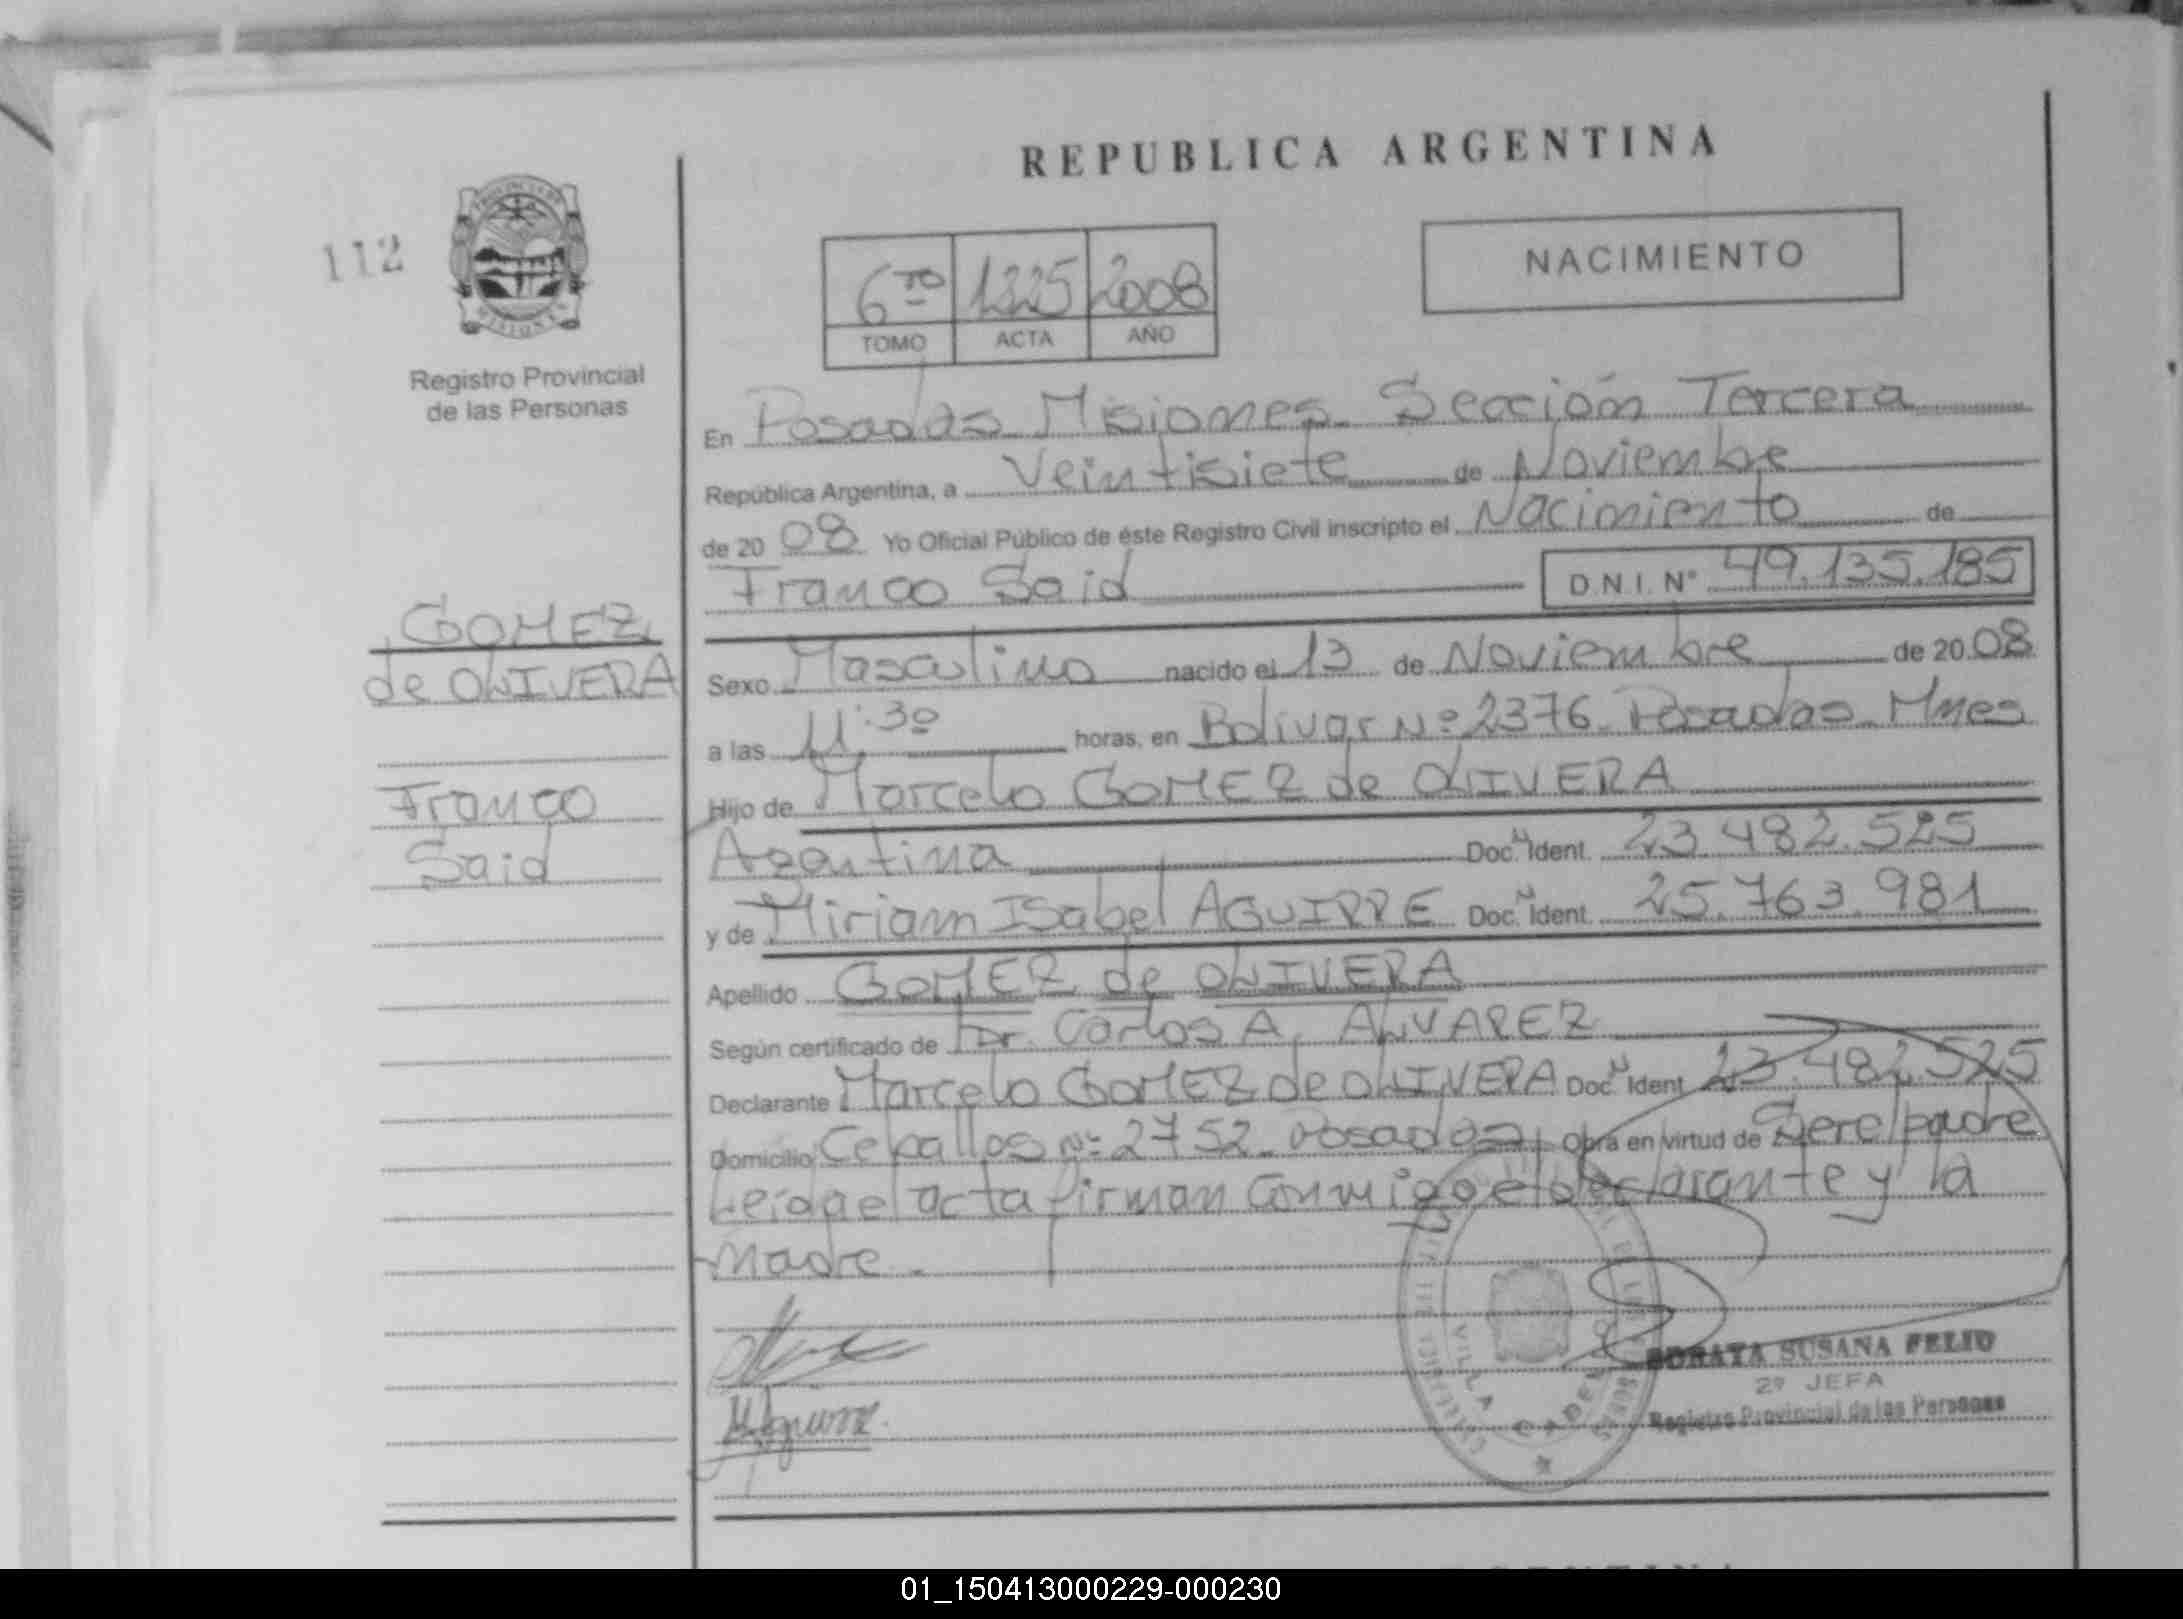 REPUBLICA ARGENTINA
112
NACIMIENTO
6TO 1225 2008
TOMO ACTA AÑO
Registro Provincial
de las Personas
En Posadas Misiones Sección Tercera
República Argentina, a Veintisiete de Noviembre
de 2008 Yo Oficial Público de éste Registro Civil inscripto el Nacimiento de
Franco Said D.N.I. Nº 49.135.185
GOMEZ
de OLIVERA
Franco
Said
Sexo Masculino nacido el 13 de Noviembre de 2008
a las 11:30 horas, en Bolivar Nº 2376 Posadas Mnes
Hijo de Marcelo GOMEZ de OLIVERA
Argentina Doc. Ident. 23.482.525
y de Miriam Isabel AGUIRRE Doc. Ident. 25.763.981
Apellido GOMEZ de OLIVERA
Según certificado de Dr. Carlos A. ALVAREZ
Declarante Marcelo GOMEZ de OLIVERA Doc. Ident 23.482.525
Domicilio Ceballos Nº 2752 Posadas Obra en virtud de Ser el padre
Leida el acta firman Conmigo el declarante y la
Madre.
MAguirre.
VILLA CABELLO
SUSANA FELIO
2º JEFA
Registro Provincial de las Personas
01_150413000229-000230